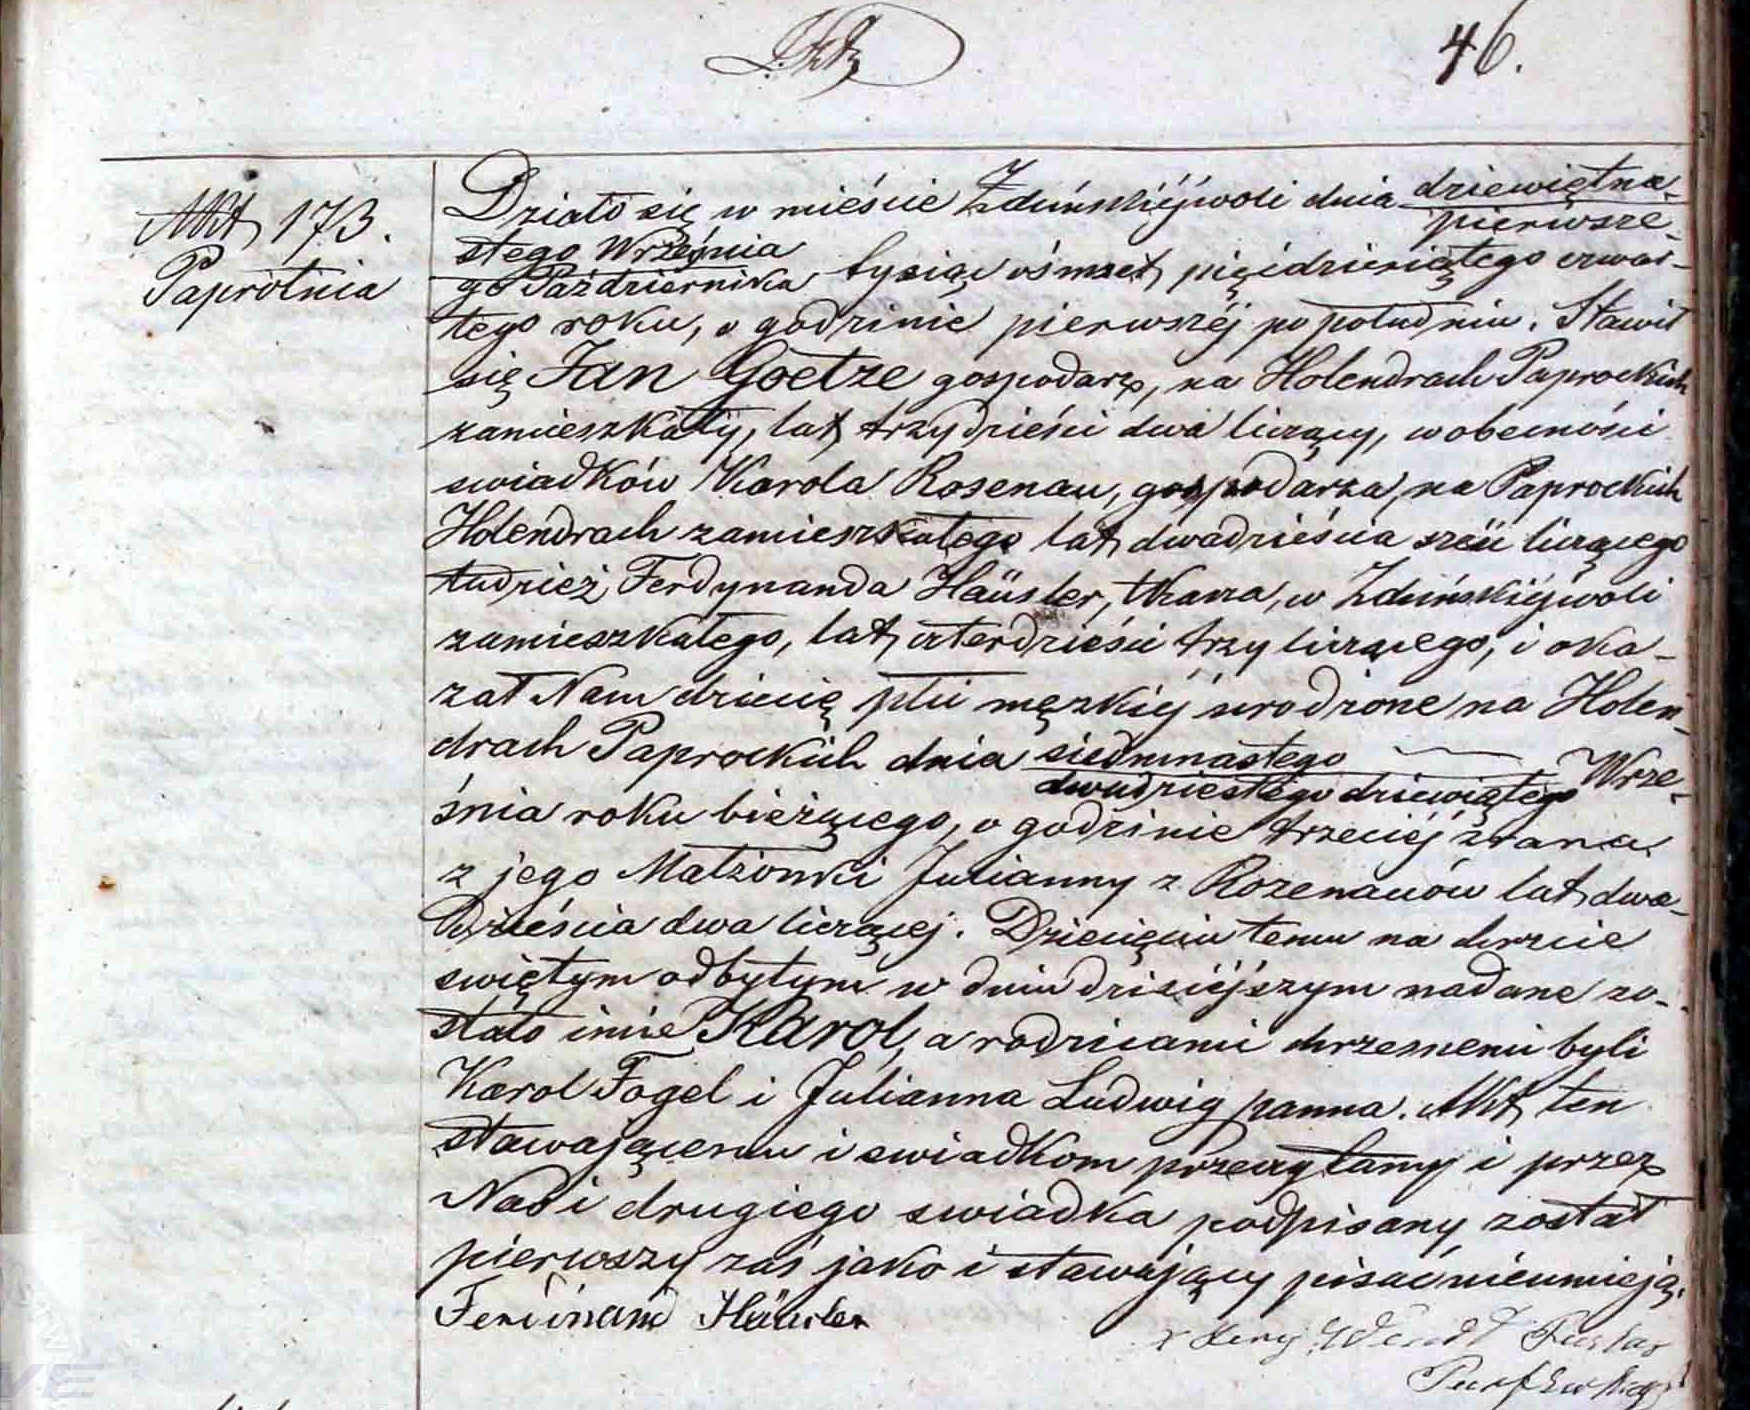 46.
Akt 173.
Paprotnia
Działo się w mieście Zduńskiéjwoli dnia dziewiętna-
pierwsze-
stego Września
go Października tysiąc ośmset pięćdziesiątego czwar-
tego roku, o godzinie pierwszéj po południu. Stawił
się Jan Goetze gospodarz, na Holendrach Paprockich
zamieszkały, lat trzydzieści dwa liczący, w obecności
swiadków Karola Rosenau, gospodarza, na Paprockich
Holendrach zamieszkałego lat dwadzieścia sześć liczącego
tudzież Ferdynanda Häusler, tkacza, w Zduńskiéjwoli
zamieszkałego, lat czterdzieści trzy liczącego, i oka-
zał Nam dziecię płci męzkiéj urodzone na Holen-
drach Paprockich dnia siedmnastego Wrze-
dwudziestego dziewiątego
śnia roku bieżącego, o godzinie trzeciéj z rana
z jego Małżonki Julianny z Rozenauów lat dwa-
dzieścia dwa liczącéj. Dziecięciu temu na chrzcie
swiętym odbytym w dniu dzisiéjszym nadane zo-
stało imie Karol, a rodzicami chrzesnemi byli
Karol Fogel i Julianna Ludwig panna. Akt ten
stawającemu i swiadkom przeczytany i przez
Nas i drugiego swiadka podpisany został
pierwszy zaś jako i stawający pisać nieumieją.
Ferdinand Häusler